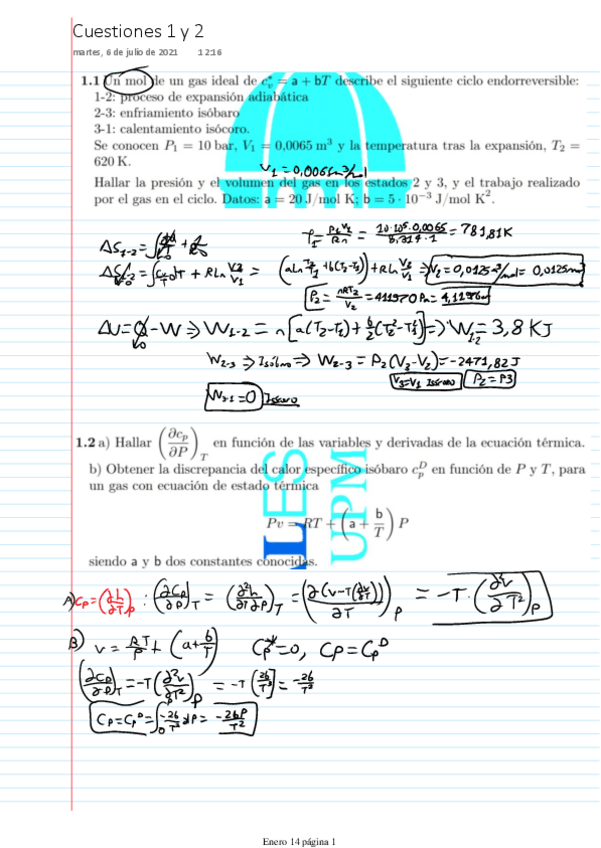 Cuestiones 1 y 2
martes, 6 de julio de 2021 12:16
1.1 Un mol de un gas ideal de c*v = a + bT describe el siguiente ciclo endorreversible:
1-2: proceso de expansión adiabática
2-3: enfriamiento isóbaro
3-1: calentamiento isócoro.
Se conocen P1 = 10 bar, V1 = 0,0065 m³ y la temperatura tras la expansión, T2 =
620 K.
Hallar la presión y el volumen del gas en los estados 2 y 3, y el trabajo realizado
por el gas en el ciclo. Datos: a = 20 J/mol K; b = 5 · 10⁻³ J/mol K².
= 781,81K
V2 = 0,0125 m³/mol = 0,0125m³
P2 = nRT2/V2 =
ΔU = Q - W ⇒ W1-2 = n[a(T2-T1) + b/2(T2²-T1²)] ⇒ W1-2 = 3,8 KJ
W2-3 ⇒ Isóbaro ⇒ W2-3 = P2(V3-V2) = -2471,82 J
V3=V1 Isocoro P2 = P3
W31 = 0 Isocoro
1.2 a) Hallar (∂cp/∂P)T en función de las variables y derivadas de la ecuación térmica.
b) Obtener la discrepancia del calor específico isóbaro cpD en función de P y T, para
un gas con ecuación de estado térmica
LES UPM
Pv = RT + (a + b/T) P
siendo a y b dos constantes conocidas.
A) Cp = (∂h/∂T)P : (∂Cp/∂P)T = (∂²h/∂T∂P)T = (∂(v-T(∂v/∂T))/∂T)P = -T · (∂²v/∂T²)P
B) v = RT/P + (a + b/T) Cp* = 0, Cp = CpD
(∂Cp/∂P)T = -T(∂²v/∂T²)P = -T [2b/T³] =
Cp = CpD = = -2bP/T²
Enero 14 página 1